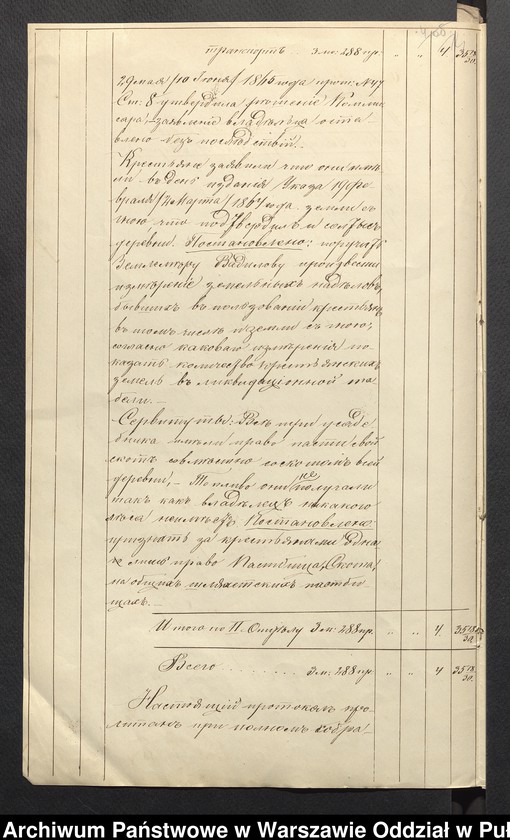 транспортъ 3 м: 288 пр. " " 4 35
29 мая /10 Іюня/ 1865 года прот: №
Ст: 8 утвердила рѣшеніе Коммис
сара, заявленіе владѣльца оста
влено безъ послѣдствій. —
Крестьяне заявили что они имѣ
ли въ день изданія Указа 19 Фе
враля /2 Марта/ 1864 года земли съ
что подтвердилъ и солтысъ
деревни. Постановлено: поручить
Землемѣру произвести
измѣреніе земельныхъ надѣловъ
бывшихъ въ пользованіи крестьянъ
въ томъ числѣ и земли съ
согласно каковаго измѣренія по
казать количество крестьянскихъ
земель въ ликвидаціонной та
бели. —
Сервитуты: Всѣ три усадь
бника имѣли право пасти свой
скотъ совмѣстно со скотомъ всей
деревни, — Топливо они не получали
такъ какъ владѣлецъ никакого
лѣса неимѣетъ Постановлено:
признать за крестьянами одно
лишь право Пастбища Скота
на общихъ шляхетскихъ пастби
щахъ. —
Итого по II. Отдѣлу 3 м: 288 пр. " " 4 35
Всего 3 м: 288 пр. " " 4 35
Настоящій протоколъ про
читанъ при полномъ собра
Archiwum Państwowe w Warszawie Oddział w Puł